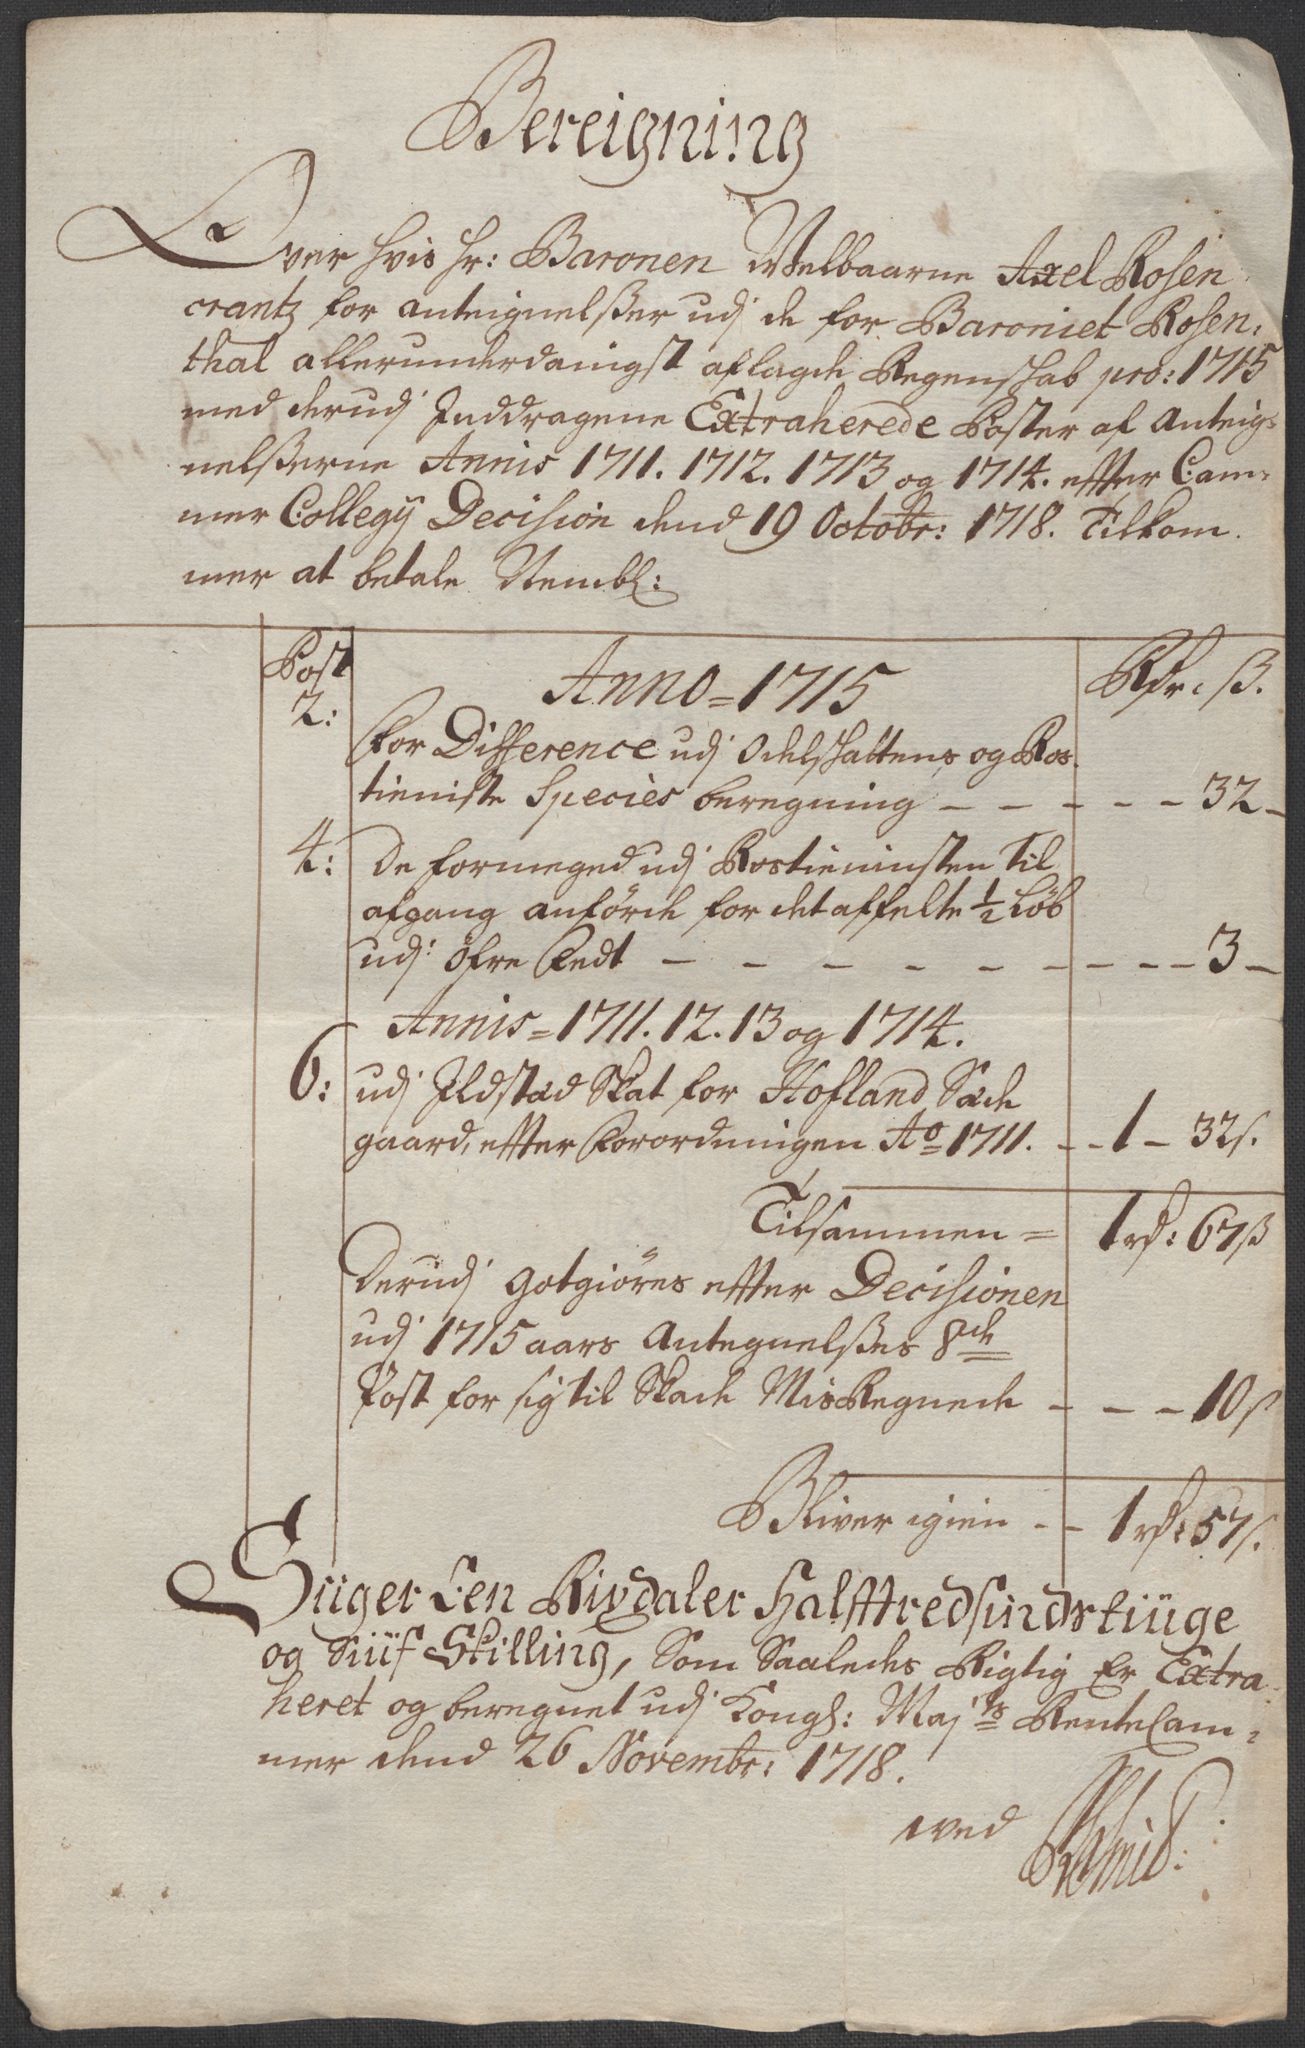 Bereigning
Over hvis hr: Baronen Welbaarne Axel Rosen
crantz for anteignelsßer udj de for Baroniet Rosen,
thal allerunderdanigst aflagde Regenskab pro: 1715
med derudj Inddragene Extraherede Poster af Anteig-
nelsßerne Annis 1711. 1712. 1713 og 1714. effter Cam-
mer Collegij Decision dend 19 Octobr: 1718. Tilkom
mer at betale Nembl:
Post
Anno = 1715
Rdr. ß.
2:
For Difference udj Odelskattens og Ros
tieniste Species beregning - - - - - 32 -
4: De formeged udj Rostieninsten Til
afgang anførde for det affelte ½ Løb
udj Øfre Fedt - - - - - - - - - 3 -
Annis = 1711. 12. 13 og 1714.
6: udj Ildstæd Skat for Hofland Sæde
gaard, effter Forordningen Ao 1711. - - 1 - 32 s.
Tilsammen = 1 rd: 67 ß
Derudj gotgiøres effter Decisionen
udj 1715 aars Antegnelsßes 8de
Post for sig til Skade Mis Regnede - - - 10 ß
Bliver igien - - 1 rd: 57 s.
Siiger Een Rixdaler Halfftredsindstiuge
og Siüf Skilling, Som Saaledes Rigtig Er Extra
heret og beregnet udj Kongl: Majts RenteCam-
mer dend 26 Novembr: 1718.
wed